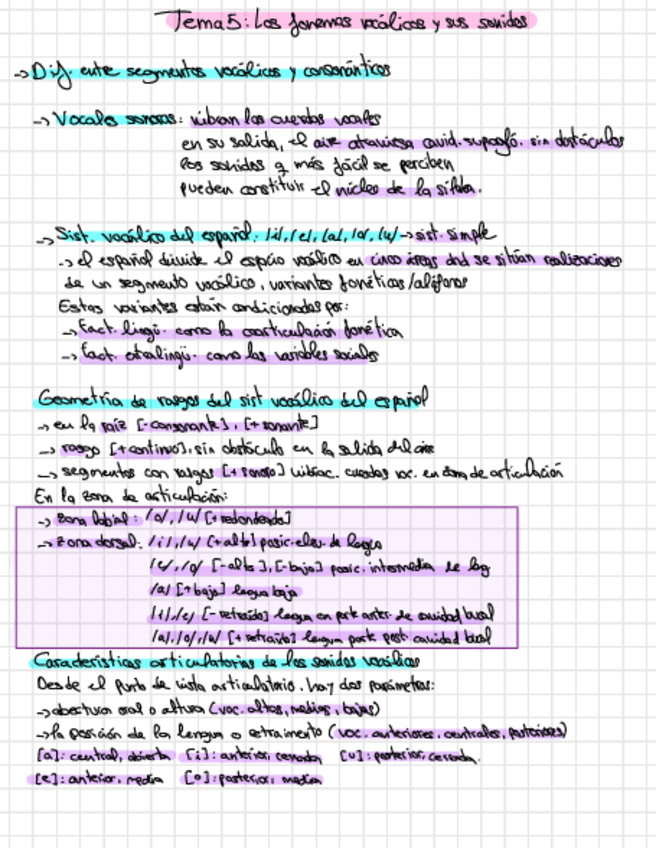 Tema 5: Los fonemas vocálicos y sus sonidos
-> Dif. entre segmentos vocálicos y consonánticos
-> Vocales sonoras: vibran las cuerdas vocales
en su salida, el aire atraviesa cavid. supragló. sin obstáculos
los sonidos q más fácil se perciben
pueden constituir el núcleo de la sílaba.
-> Sist. vocálico del español: /i/, /e/, /a/, /o/, /u/ -> sist. simple
-> el español divide el espacio vocálico en cinco áreas dnd se sitúan realizaciones
de un segmento vocálico, variantes fonéticas/alófonos
Estas variantes están condicionadas por:
-> Fact. lingü. como la coarticulación fonética
-> fact. extralingü. como las variables sociales
Geometría de rasgos del sist vocálico del español
-> en la raíz [-consonante], [+sonante]
-> rasgo [+continuo], sin obstáculo en la salida del aire
-> segmentos con rasgos [+sonoro] vibrac. cuerdas voc. en zona de articulación
En la zona de articulación:
-> zona labial: /o/, /u/ [+redondeado]
-> zona dorsal: /i/, /u/ [+alto] posic. elev. de lengua
/e/, /o/ [-alto], [-bajo] posic. intermedia de leng
/a/ [+bajo] lengua baja
/i/, /e/ [-retraído] lengua en parte anter. de cavidad bucal
/a/, /o/, /u/ [+retraído] lengua parte post. cavidad bucal
Características articulatorias de los sonidos vocálicos
Desde el punto de vista articulatorio, hay dos parámetros:
-> abertura oral o altura (voc. altas, medias, bajas)
-> la posición de la lengua o retraimento (voc. anteriores, centrales, posteriores)
[a]: central, abierta [i]: anterior, cerrada [u]: posterior, cerrada.
[e]: anterior, media [o]: posterior, media